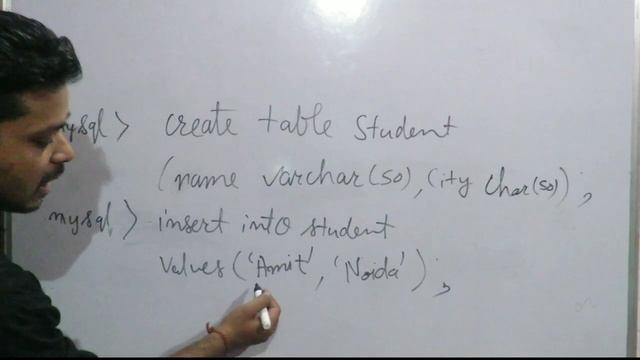 mysql> Create table Student
(name varchar(50), City Char(50));
mysql> insert into student
Values ('Amit', 'Noida');